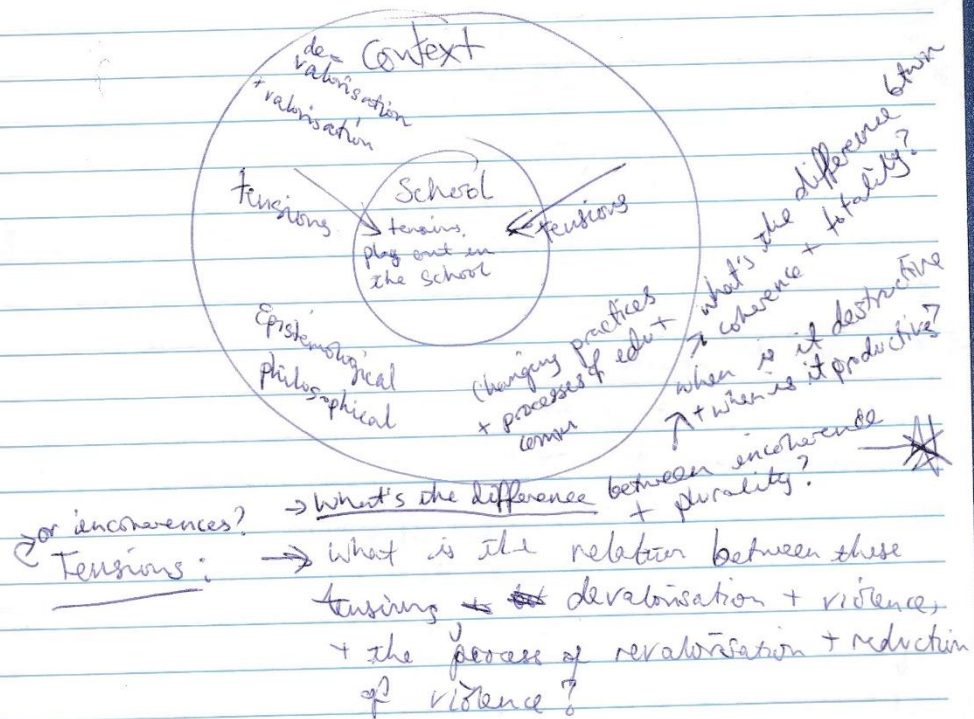 Context
de-
valorisation
+ valorisation
tensions
School
tensions
play out in
the school
tensions
Epistemological
philosophical
Changing practices
+ processes of edu +
what's the difference btwn
coherence + totality?
when is it destructive
+ when is it productive?
→ What's the difference between incoherence
+ plurality?
or incoherences?
Tensions:
→ What is the relation between these
tensions devalorisation + violence,
+ the process of revalorisation + reduction
of violence?